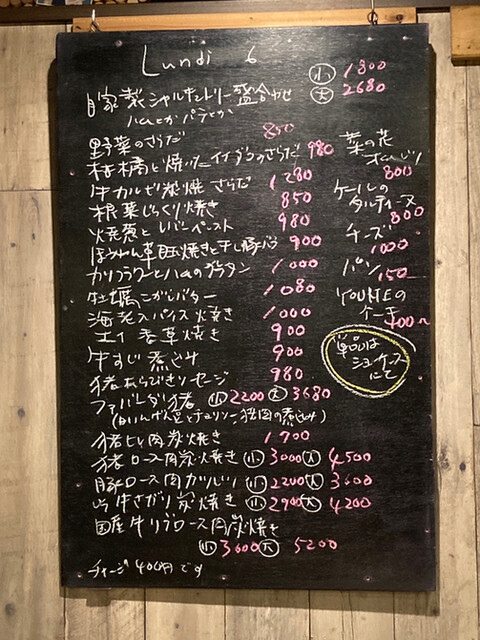 Lundi 6
自家製シャルキュトリー盛合わせ 小 1800
ハムとかパテとか 大 2680
野菜のさらだ 850
柑橘と焼いたイイダコのさらだ 980
牛カルビ炭焼さらだ 1280
根菜じっくり焼き 850
焼葱とレバーペースト 980
ほうれん草目玉焼きと干し豚バラ 900
カリフラワーとハムのグラタン 1000
牡蠣こがしバター 1080
海老スパイス焼き 1000
エイ香草焼き 900
牛すじ煮込み 900
猪粗びきソーセージ 980
ファバーダ猪 小 2200 大 3680
(白いんげん豆とチョリソー猪肉の煮込み)
猪ヒレ肉炭焼き 1700
猪ロース肉炭焼き 小 3000 大 4500
豚ロース肉カツレツ 小 2200 大 3600
牛さがり炭焼き 小 2900 大 4200
国産牛リブロース肉炭焼き
小 3600 大 5200
チャージ 400円です
菜の花
オムレツ
800
ケールの
タルティーヌ
800
チーズ
1000
パン 150
YOUMEの
ケーキ
400〜
単品は
ショーケース
にて